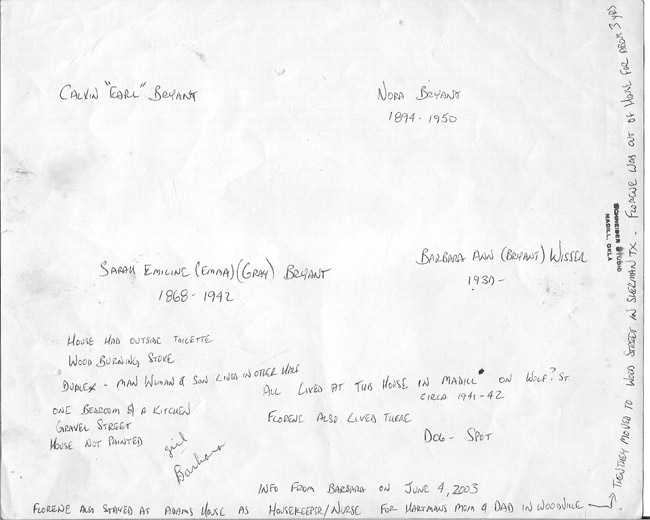 CALVIN "EARL" BRYANT
NORA BRYANT
1894 - 1950
SARAH EMILINE (EMMA) (GRAY) BRYANT
1868 - 1942
BARBARA ANN (BRYANT) WISSEL
1930 -
HOUSE HAD OUTSIDE TOILETTE
WOOD BURNING STOVE
DUPLEX - MAN WOMAN & SON LIVED IN OTHER HALF
ONE BEDROOM & A KITCHEN
GRAVEL STREET
HOUSE NOT PAINTED
girl
Barbara
ALL LIVED AT THIS HOUSE IN MADILL ON WOLF? ST
CIRCA 1941-42
FLORENE ALSO LIVED THERE
DOG - SPOT
INFO FROM BARBARA ON JUNE 4, 2003
FLORENE ALSO STAYED AT ADAMS HOUSE AS HOUSEKEEPER/NURSE FOR HARTMANS MOM & DAD IN WOODVILLE →
THEN THEY MOVED TO WOOD STREET IN SHERMAN TX. FLORENE WAS OUT OF HOME FOR ABOUT 3 YRS
SCHNEIDER STUDIO
MADILL, OKLA